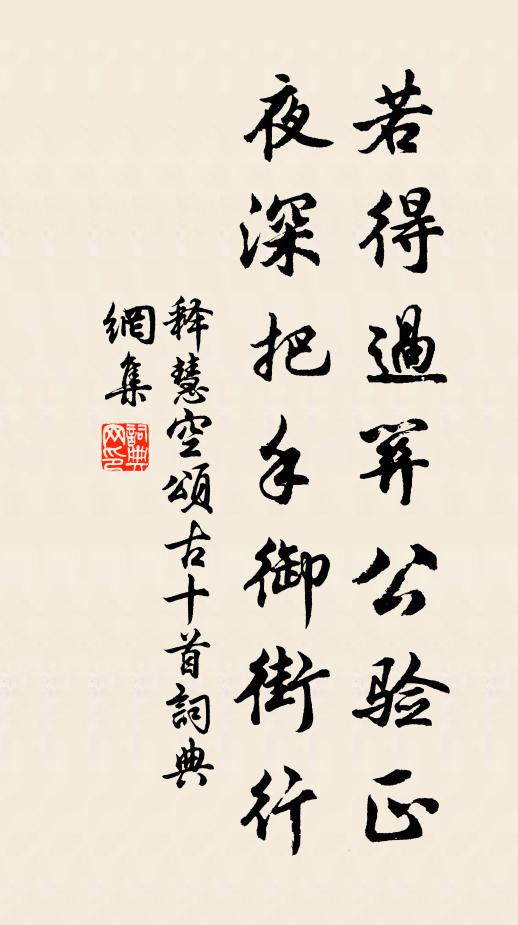 若得過關公验正
夜深把手御街行
释慧空頌古十首詞典
網集
詞典
网印